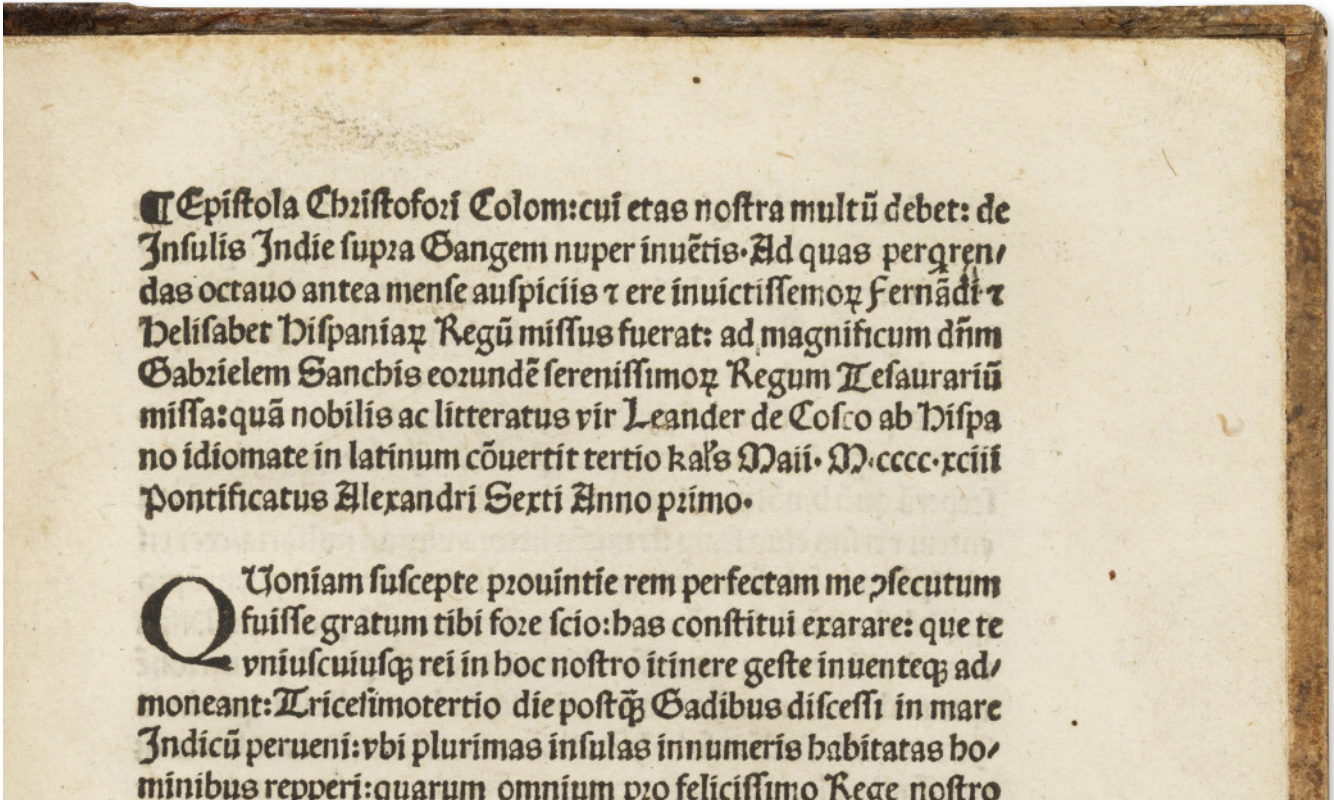 ¶ Epiſtola Chriſtofori Colom: cui etas noſtra multū debet: de
Inſulis Indie ſupra Gangem nuper inuētis. Ad quas perqren⸗
das octauo antea menſe auſpiciis ⁊ ere inuictiſſemoꝝ Fernādi ⁊
Heliſabet Hiſpaniaꝝ Regū miſſus fuerat: ad magnificum dn̄m
Gabrielem Sanchis eorundē ſereniſſimoꝝ Regum Teſaurariū
miſſa: quā nobilis ac litteratus vir Leander de Coſco ab Hiſpa
no idiomate in latinum cōuertit tertio kal's Maii. M.cccc.xciii
Pontificatus Alexandri Sexti Anno primo.
QUoniam ſuſcepte prouintie rem perfectam me ꝯſecutum
fuiſſe gratum tibi fore ſcio: has conſtitui exarare: que te
vniuſcuiuſqꝫ rei in hoc noſtro itinere geſte inuenteqꝫ ad⸗
moneant: Triceſimotertio die poſtqꝫ̄ Gadibus diſceſſi in mare
Indicū perueni: vbi plurimas inſulas innumeris habitatas ho⸗
minibus repperi: quarum omnium pro feliciſſimo Rege noſtro